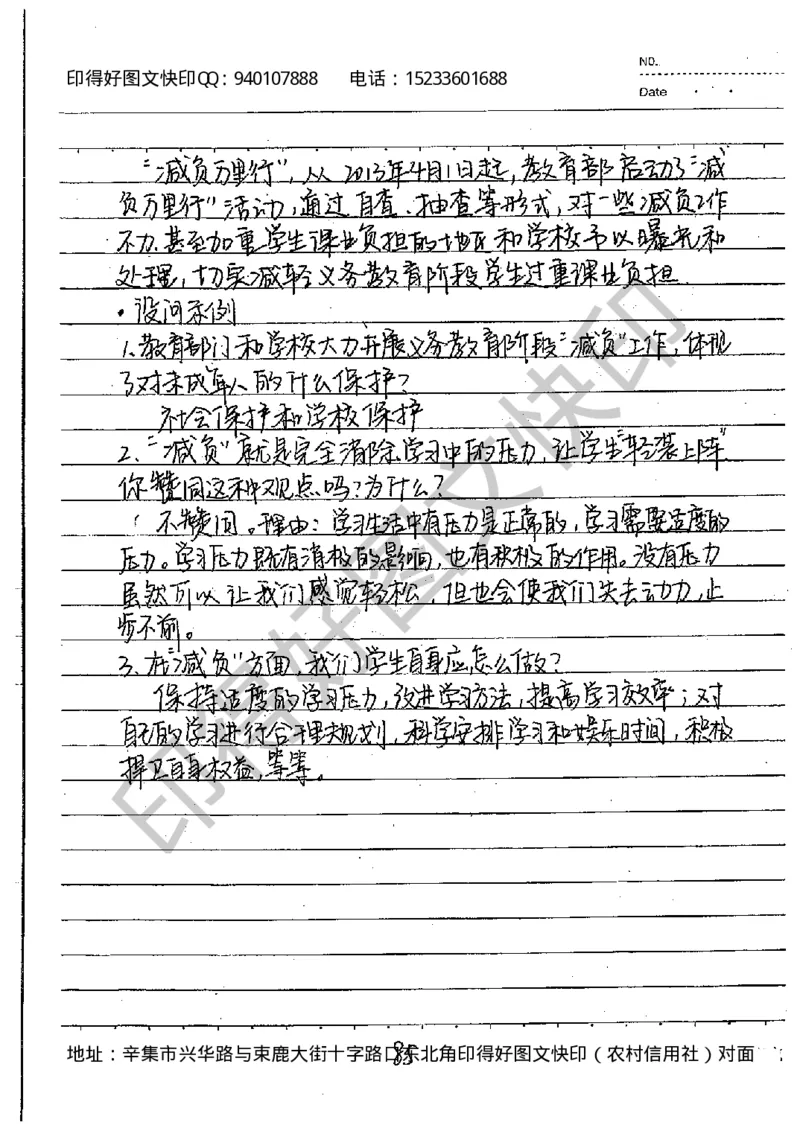 印得好图文快印QQ：940107888 电话：15233601688
NO.
Date
“减负万里行”，从2013年4月1日起，教育部启动了“减
负万里行”活动，通过自查、抽查等形式，对一些减负工作
不力、甚至加重学生课业负担的地区和学校予以曝光和
处理，切实减轻义务教育阶段学生过重课业负担.
·设问示例
1.教育部门和学校大力开展义务教育阶段“减负”工作，体现
了对未成年人的什么保护？
社会保护和学校保护
2.“减负”就是完全消除学习中的压力，让学生“轻装上阵”
你赞同这种观点吗？为什么？
不赞同。理由：学习生活中有压力是正常的，学习需要适度的
压力。学习压力既有消极的影响，也有积极的作用。没有压力
虽然可以让我们感觉轻松，但也会使我们失去动力，止
步不前。
3.在“减负”方面，我们学生自身应怎么做？
保持适度的学习压力，改进学习方法，提高学习效率；对
自己的学习进行合理规划，科学安排学习和娱乐时间，积极
捍卫自身权益，等等。
印得好图文快印
地址：辛集市兴华路与束鹿大街十字路口东北角印得好图文快印（农村信用社）对面
85